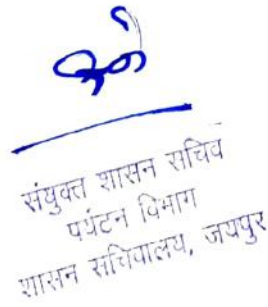 संयुक्त शासन सचिव
पर्यटन विभाग
शासन सचिवालय, जयपुर